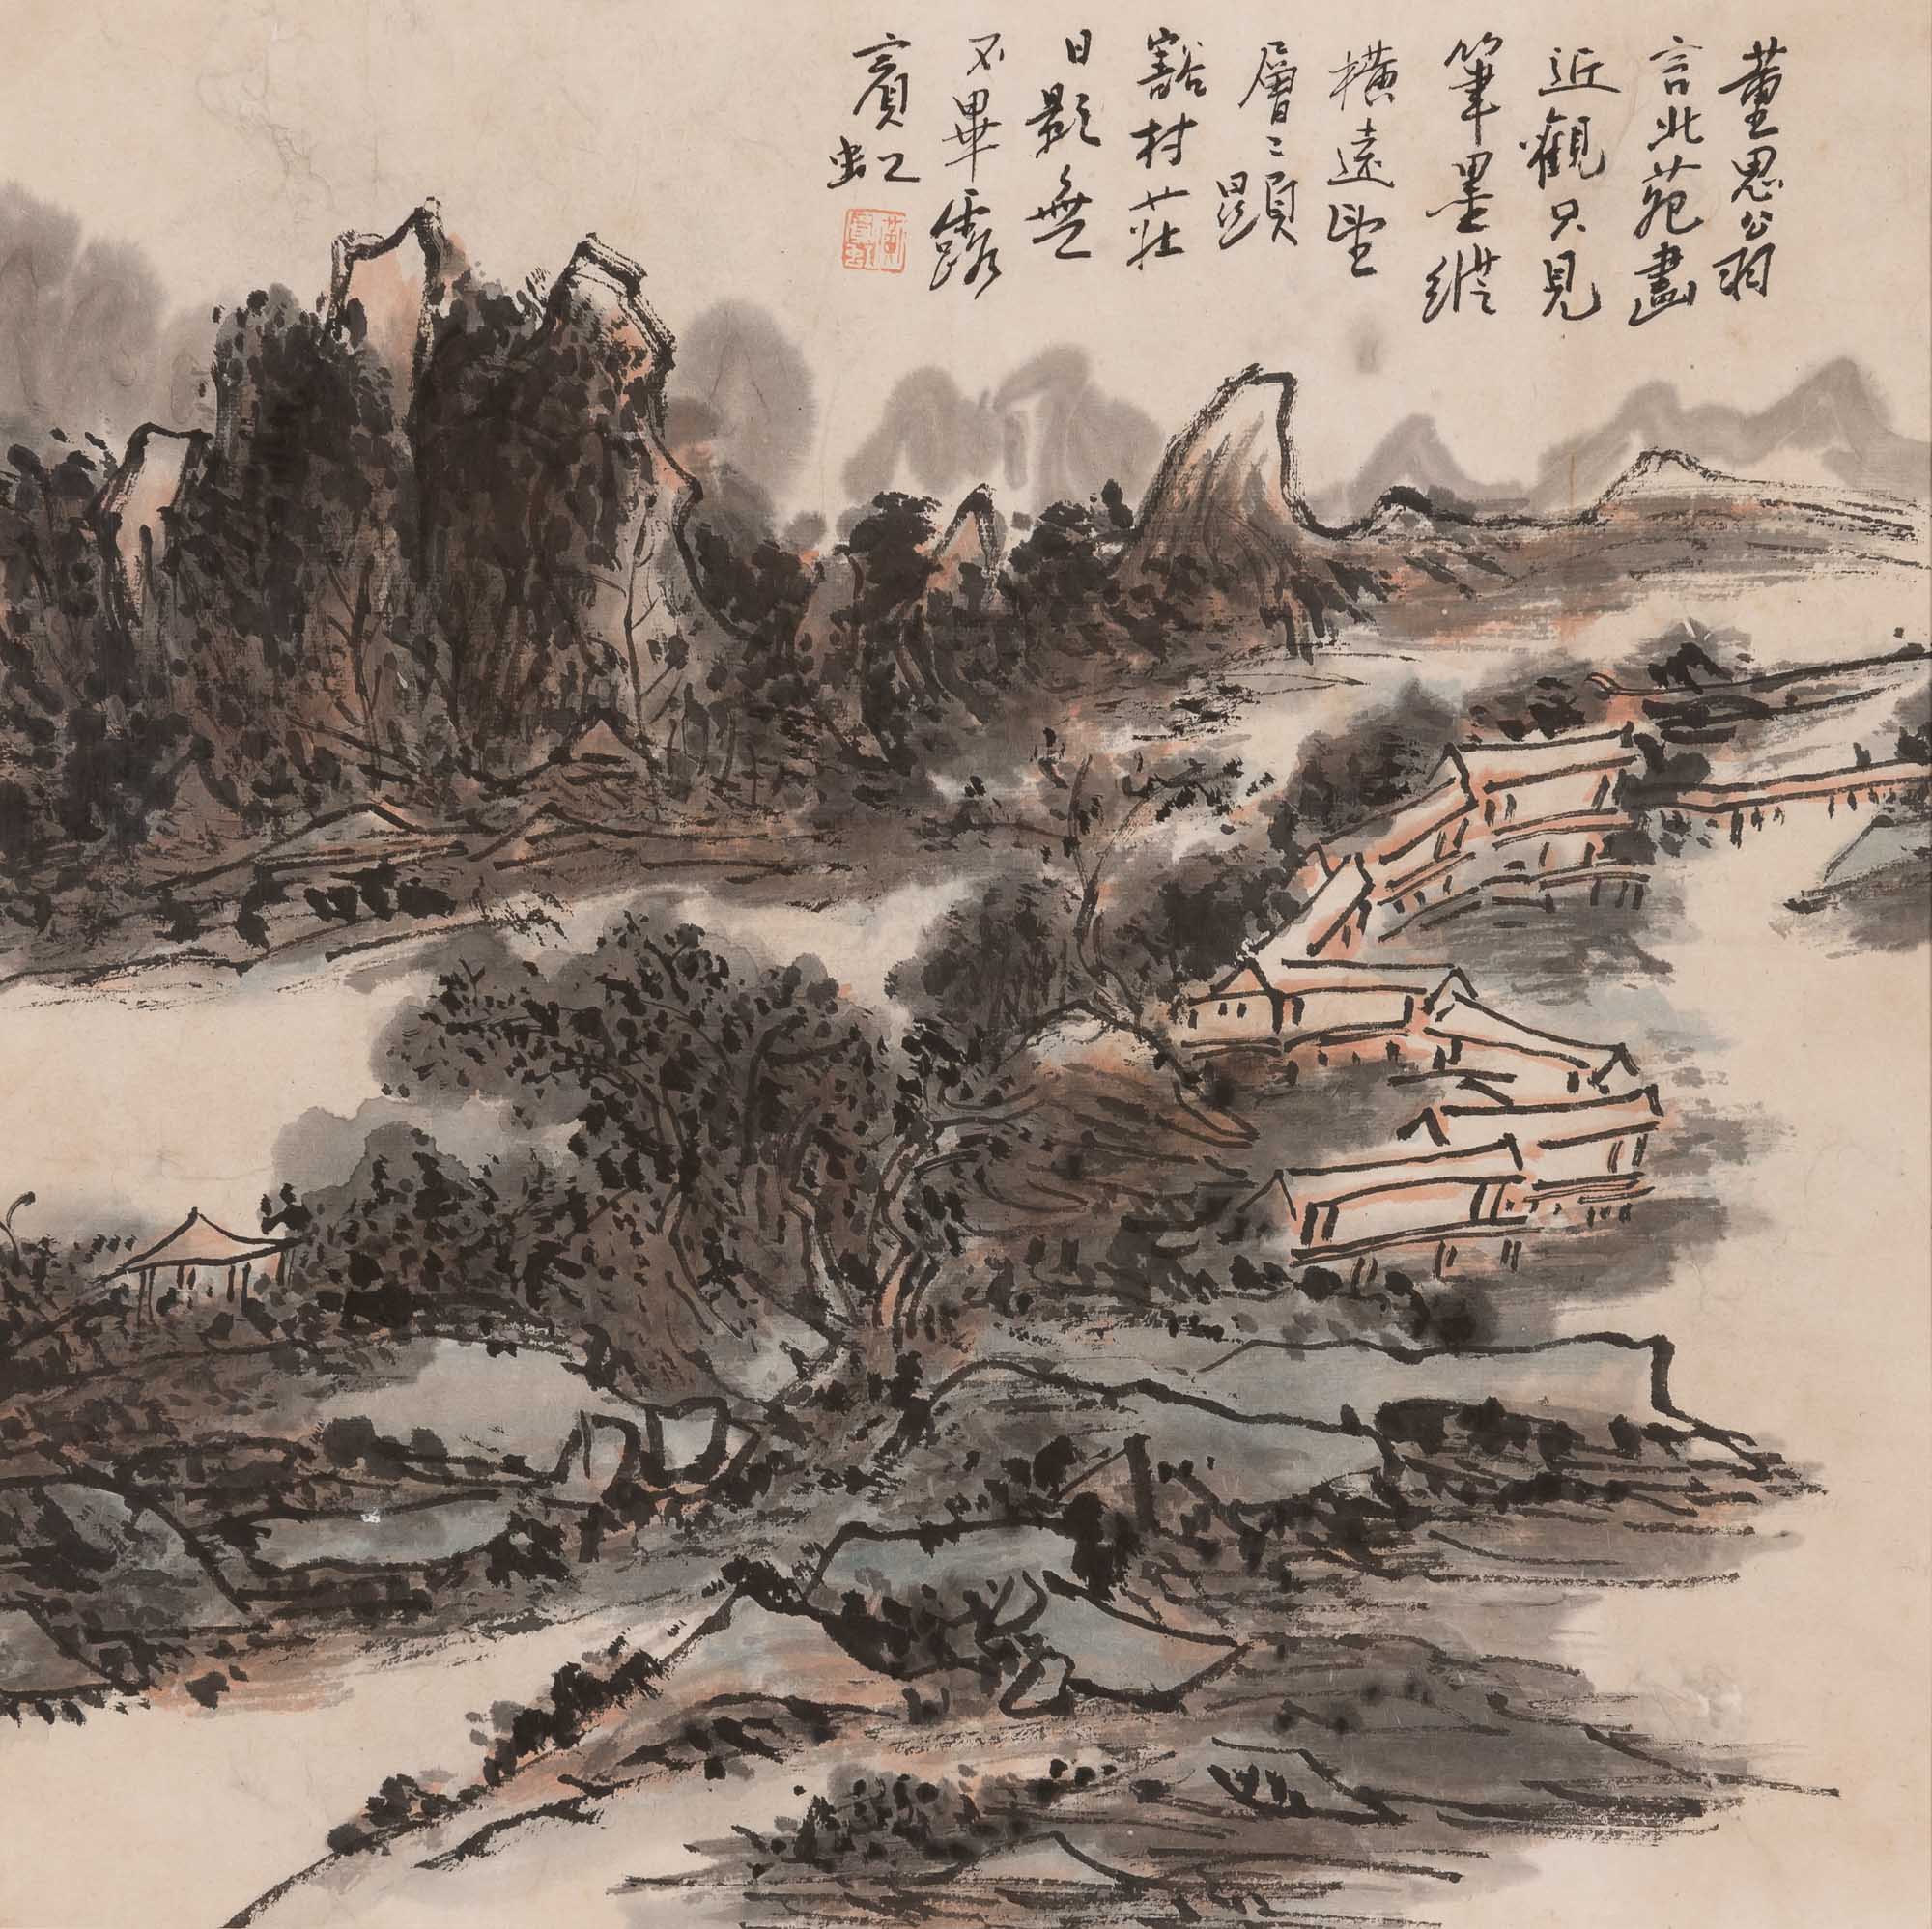 董思翁
言北苑畫
近觀只見
筆墨縱
橫遠望
層〻顯
豁村莊
日影無
不畢露
賓虹
黃賓虹